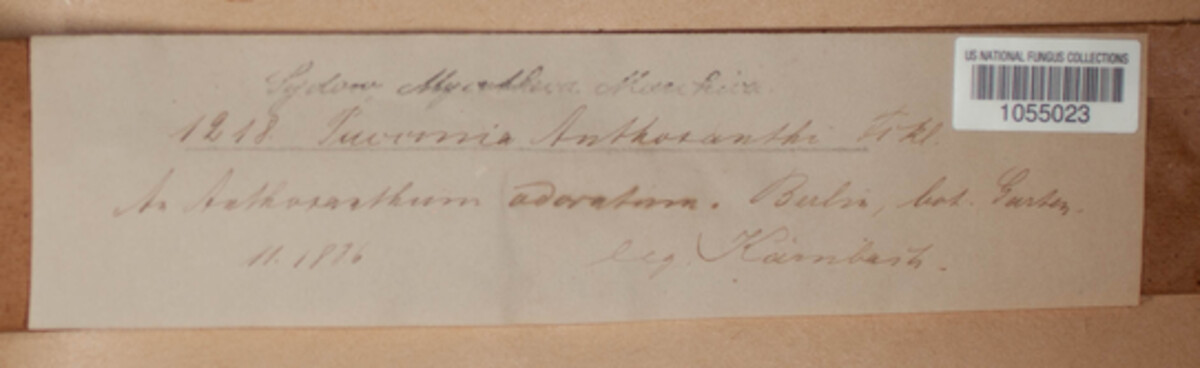 US NATIONAL FUNGUS COLLECTIONS
1055023
Sydow, Mycotheca Marchica.
1218 Puccinia Anthoxanthi Fckl.
An Anthoxanthum odoratum. Berlin, bot. Garten.
leg. Kärnbach.